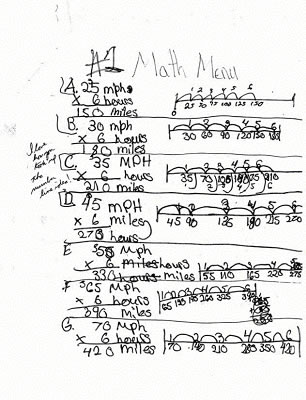 A1 Math Menu
A. 25 mph
x 6 hours
150 miles
1 2 3 4 5 6
0 25 50 75 100 125 150
B. 30 mph
x 6 hours
180 miles
1 2 3 4 5 6
30 60 90 120 150 180
C. 35 MPH
x 6 hours
210 miles
1 2 3 4 5 6
35 70 105 140 175 210
D. 45 mph
x 6 miles
270 hours
45 90 135 180 225 270
E 55 Mph
x 6 miles hours
330 hours miles
55 110 165 220 275
F. 65 mph
x 6 hours
390 miles
G. 70 mph
x 6 hours
420 miles
1 2 3 4 5 6
70 140 210 285 350 420